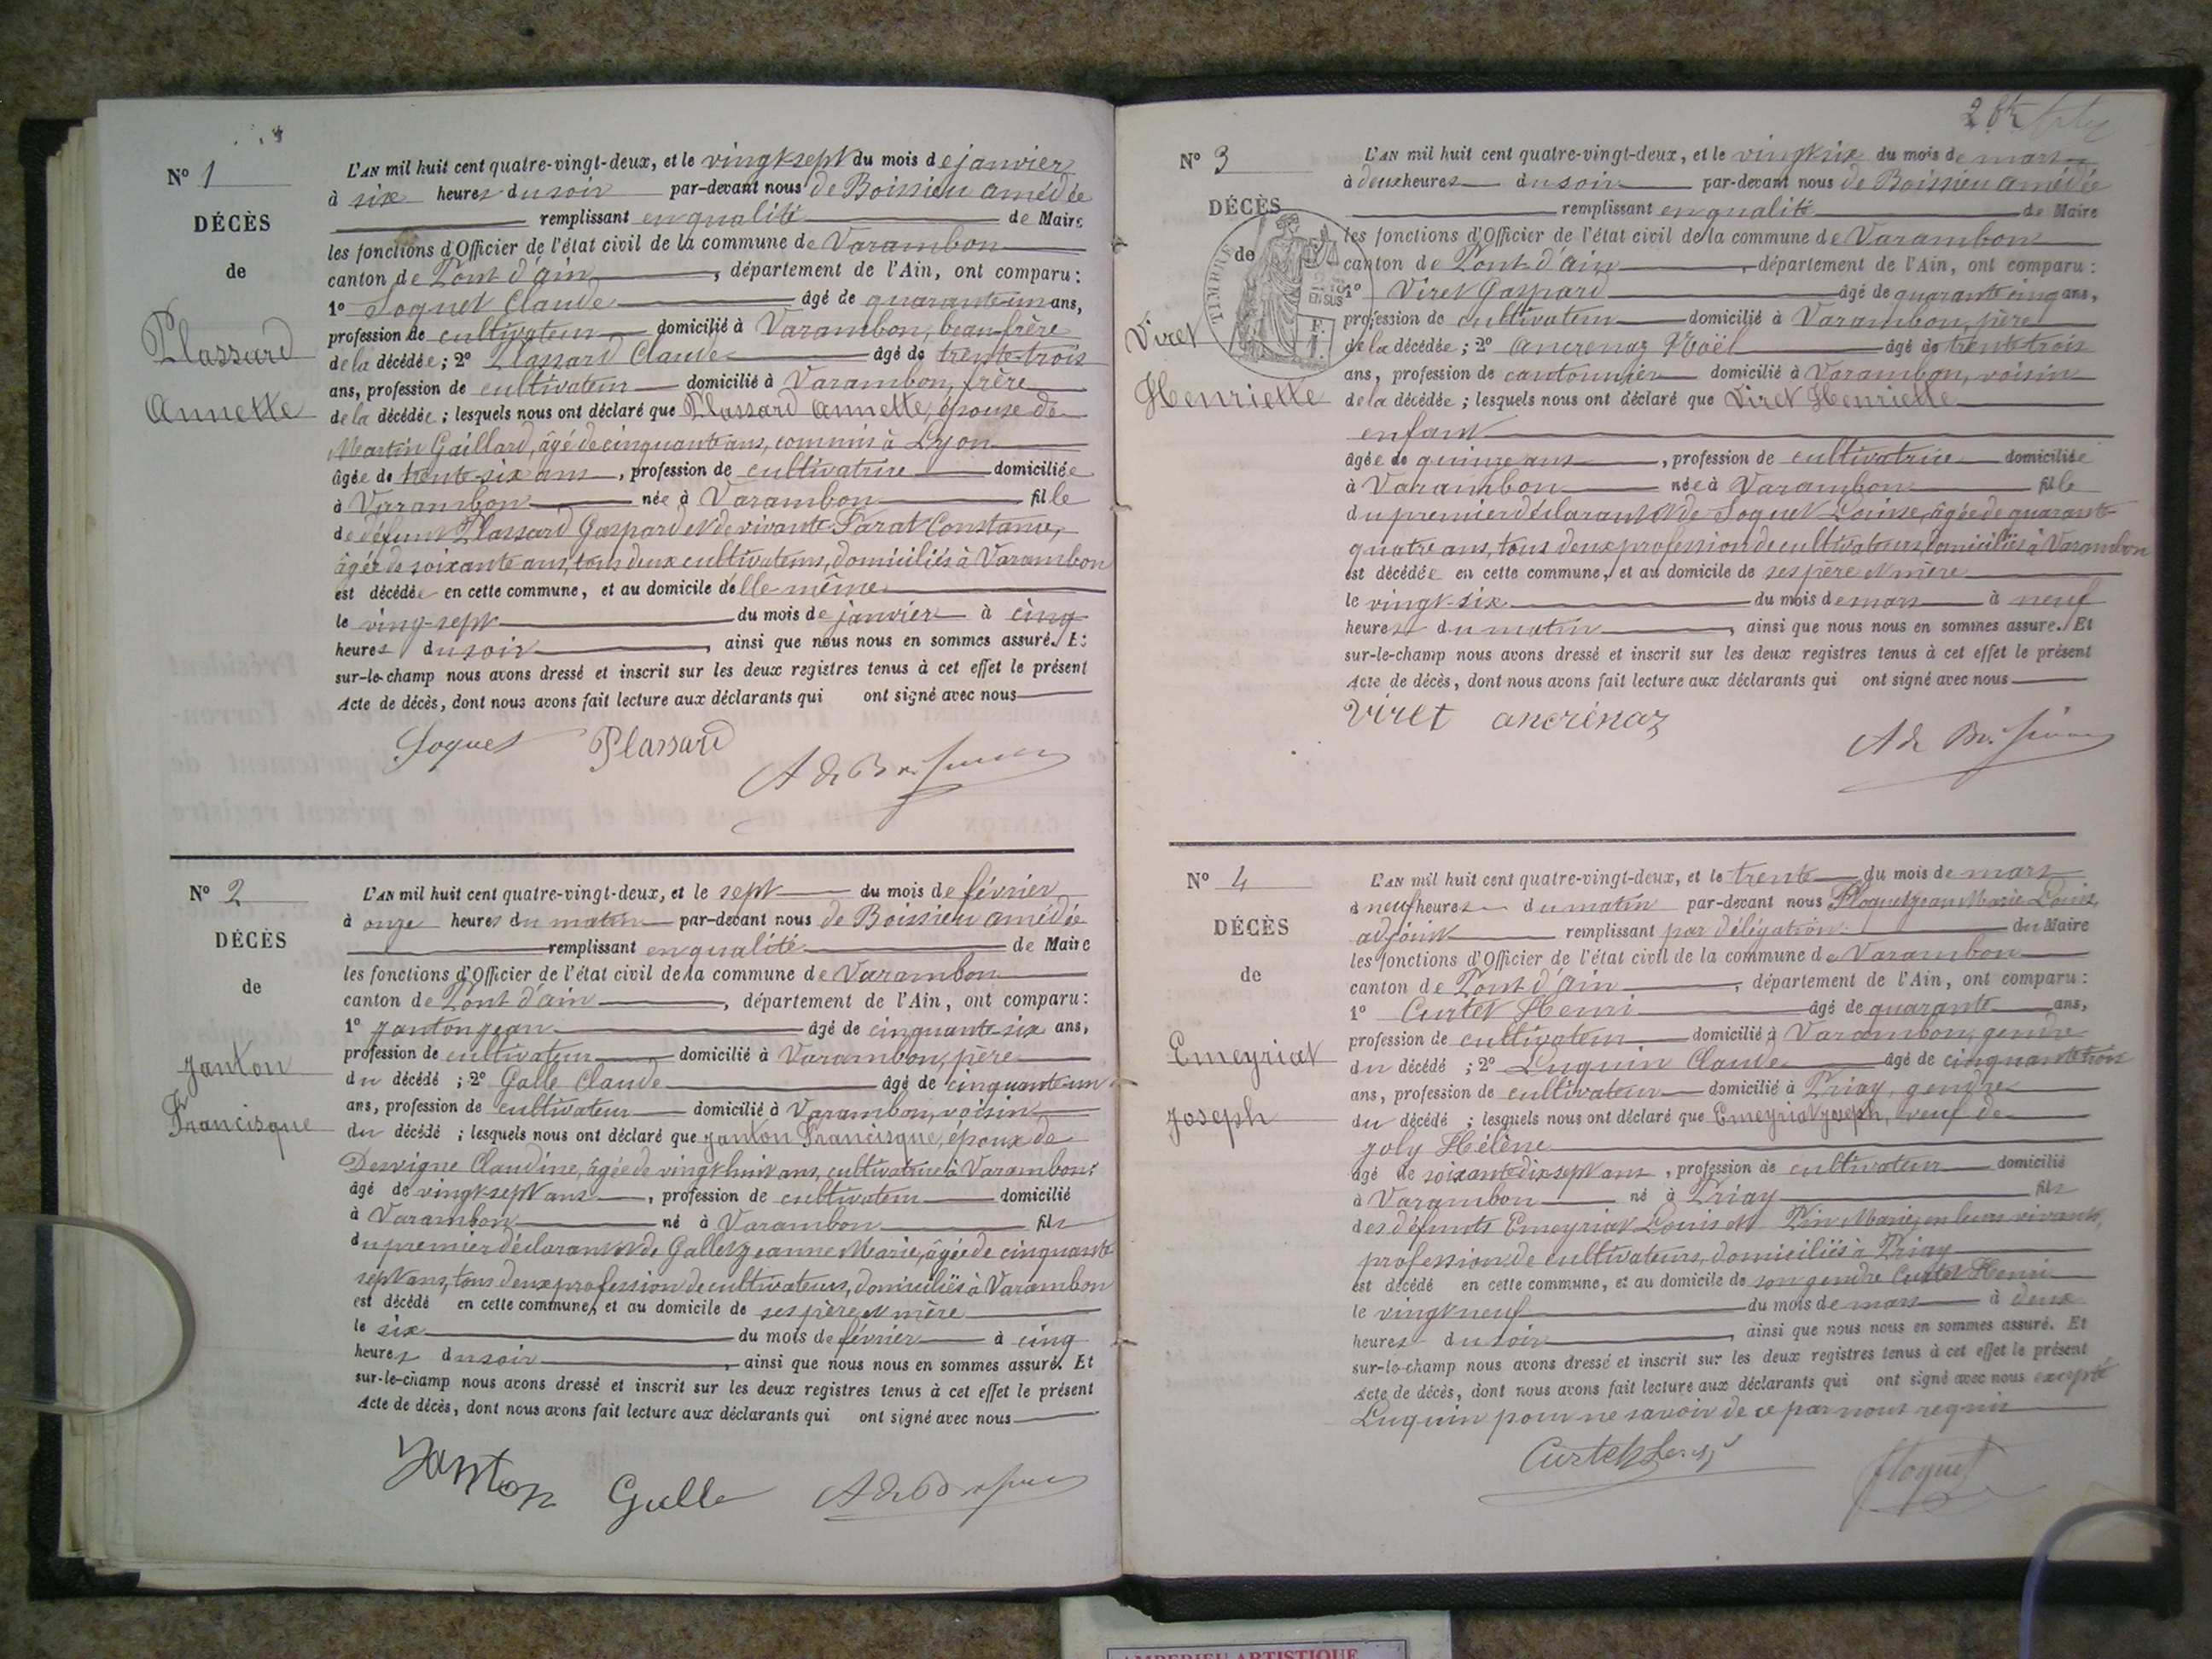 Nº 1
DÉCÈS
de
Plassard
Annette
L'AN mil huit cent quatre-vingt-deux, et le vingt-sept du mois de janvier
à six heures du soir par-devant nous de Boissieu Amédée
remplissant en qualité de Maire
les fonctions d'Officier de l'état civil de la commune de Varambon
canton de Pont d'ain, département de l'Ain, ont comparu :
1º Soquet Claude âgé de quarante-un ans,
profession de cultivateur domicilié à Varambon, beau-frère
de la décédée ; 2º Plassard Claude âgé de trente-trois
ans, profession de cultivateur domicilié à Varambon, frère
de la décédée ; lesquels nous ont déclaré que Plassard Annette, épouse de
Martin Gaillard, âgé de cinquante ans, commis à Lyon
âgée de trente-six ans, profession de cultivatrice domiciliée
à Varambon née à Varambon fille
de défunt Plassard Gaspard et de vivante Parat Constance,
âgée de soixante ans, tous deux cultivateurs, domiciliés à Varambon
est décédée en cette commune, et au domicile d'elle-même
le ving-sept du mois de janvier à cinq
heures du soir, ainsi que nous nous en sommes assuré. Et
sur-le-champ nous avons dressé et inscrit sur les deux registres tenus à cet effet le présent
Acte de décès, dont nous avons fait lecture aux déclarants qui ont signé avec nous
Soquet Plassard
A de Boissieu
Nº 2
DÉCÈS
de
Janton
Francisque
L'AN mil huit cent quatre-vingt-deux, et le sept du mois de février
à onze heures du matin par-devant nous de Boissieu Amédée
remplissant en qualité de Maire
les fonctions d'Officier de l'état civil de la commune de Varambon
canton de Pont d'ain, département de l'Ain, ont comparu :
1º Janton Jean âgé de cinquante-six ans,
profession de cultivateur domicilié à Varambon, père
du décédé ; 2º Galle Claude âgé de cinquante-un
ans, profession de cultivateur domicilié à Varambon, voisin
du décédé ; lesquels nous ont déclaré que Janton Francisque, époux de
Desvigne Claudine, âgée de vingt-huit ans, cultivatrice à Varambon,
âgé de vingt-sept ans, profession de cultivateur domicilié
à Varambon né à Varambon fils
du premier déclarant et de Gallet Jeanne Marie, âgée de cinquante
sept ans, tous deux profession de cultivateurs, domiciliés à Varambon
est décédé en cette commune, et au domicile de ses père et mère
le six du mois de février à cinq
heures du soir, ainsi que nous nous en sommes assuré. Et
sur-le-champ nous avons dressé et inscrit sur les deux registres tenus à cet effet le présent
Acte de décès, dont nous avons fait lecture aux déclarants qui ont signé avec nous
Janton Galle A de Boissieu
Nº 3
DÉCÈS
de
TIMBRE
EN SUS
Viret
Henriette
L'AN mil huit cent quatre-vingt-deux, et le vingt-six du mois de mars
à deux heures du soir par-devant nous de Boissieu Amédée
remplissant en qualité de Maire
les fonctions d'Officier de l'état civil de la commune de Varambon
canton de Pont-d'ain, département de l'Ain, ont comparu :
1º Viret Gaspard âgé de quarante cinq ans,
profession de cultivateur domicilié à Varambon, père
de la décédée ; 2º Ancrenaz Noël âgé de trente-trois
ans, profession de cantonnier domicilié à Varambon, voisin
de la décédée ; lesquels nous ont déclaré que Viret Henriette
enfant
âgée de quinze ans, profession de cultivatrice domiciliée
à Varambon née à Varambon fille
du premier déclarant et de Soquet Louise, âgée de quarante-
quatre ans, tous deux profession de cultivateurs, domiciliés à Varambon
est décédée en cette commune, et au domicile de ses père et mère
le vingt-six du mois de mars à neuf
heures du matin, ainsi que nous nous en sommes assuré. Et
sur-le-champ nous avons dressé et inscrit sur les deux registres tenus à cet effet le présent
Acte de décès, dont nous avons fait lecture aux déclarants qui ont signé avec nous
Viret ancrénaz
A de Boissieu
Nº 4
DÉCÈS
de
Emeyriat
Joseph
L'AN mil huit cent quatre-vingt-deux, et le trente du mois de mars
à neuf heures du matin par-devant nous Floquet Jean Marie Louis,
adjoint remplissant par délégation du Maire
les fonctions d'Officier de l'état civil de la commune de Varambon
canton de Pont d'ain, département de l'Ain, ont comparu :
1º Curtet Henri âgé de quarante ans,
profession de cultivateur domicilié à Varambon, gendre
du décédé ; 2º Luquin Claude âgé de cinquante-trois
ans, profession de cultivateur domicilié à Priay, gendre
du décédé ; lesquels nous ont déclaré que Emeyriat Joseph, veuf de
Joly Hélène
âgé de soixante dix-sept ans, profession de cultivateur domicilié
à Varambon né à Priay fils
des défunts Emeyriat Louis et Pin Marie, en leurs vivants,
profession de cultivateurs, domiciliés à Priay
est décédé en cette commune, et au domicile de son gendre Curtet Henri
le vingt-neuf du mois de mars à deux
heures du soir, ainsi que nous nous en sommes assuré. Et
sur-le-champ nous avons dressé et inscrit sur les deux registres tenus à cet effet le présent
Acte de décès, dont nous avons fait lecture aux déclarants qui ont signé avec nous excepté
Luquin pour ne savoir de ce par nous requis
Curtet floquet
AMPERIEU ARTISTIQUE